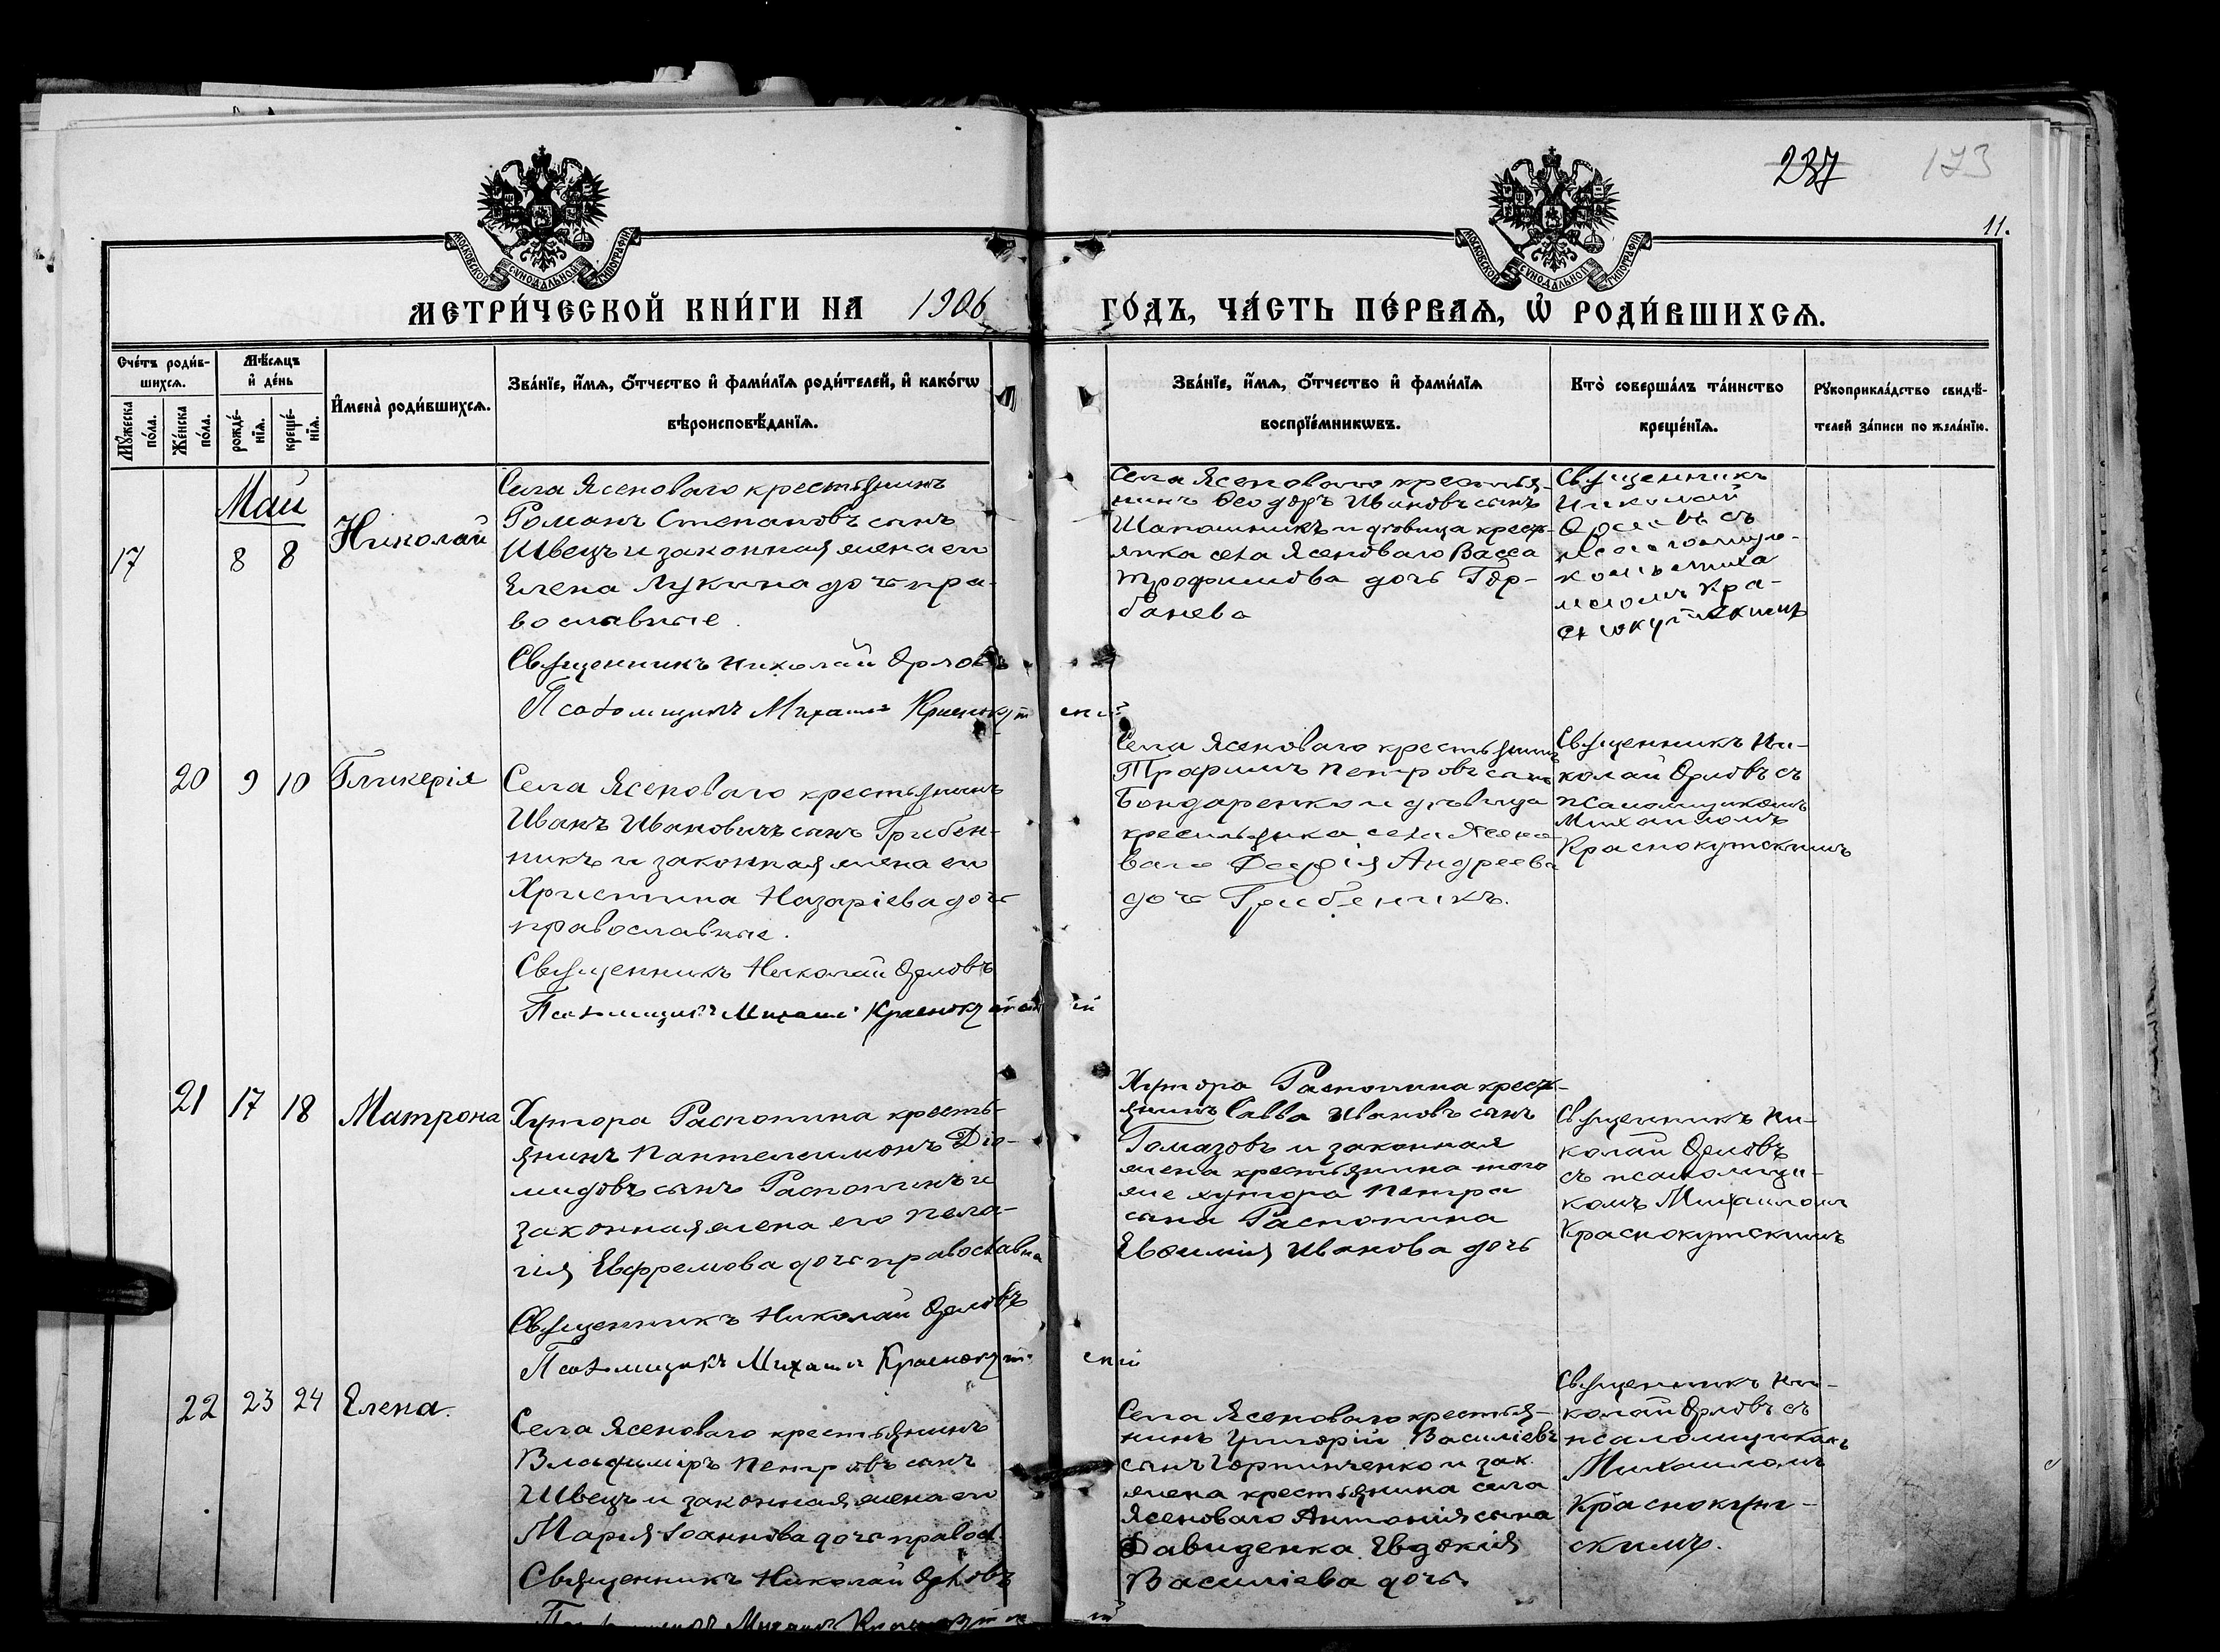 237
173
11.
МОСКОВСКОЙ СѴНОДАЛЬНОЙ ТИПОГРАФІИ.
МОСКОВСКОЙ СѴНОДАЛЬНОЙ ТИПОГРАФІИ.
МЕТРИ́ЧЕСКОЙ КНИ́ГИ НА 1906
ГО́ДЪ, ЧА́СТЬ ПЕ́РВАѦ, Ѡ҆ РОДИ́ВШИХСѦ.
Сче́тъ роди́в-
шихсѧ.
Мѹ́жеска
по́ла.
Же́нска
по́ла.
Мѣ́сѧцъ
и҆ де́нь
рожде́-
нїѧ.
креще́-
нїѧ.
И҆мена̀ роди́вшихсѧ.
Зва́нїе, и҆́мѧ, ѻ҆́тчество и҆ фами́лїѧ роди́телей, и҆ како́гѡ
вѣроисповѣ́данїѧ.
Зва́нїе, и҆́мѧ, ѻ҆́тчество и҆ фами́лїѧ
воспрїе́мникѡвъ.
Кто̀ соверша́лъ та́инство
креще́нїѧ.
Рѹкоприкла́дство свидѣ́-
телей за́писи по жела́нїю.
Май
17
8
8
Николай
Села Ясеноваго крестьянинъ
Романъ Степановъ сынъ
Швецъ и законная жена его
Елена Лукина дочь пра-
вославные.
Священникъ Николай Орловъ
Псаломщикъ Михаилъ Краснокутскій
Села Ясеноваго крестья-
нинъ Ѳеодоръ Ивановъ сынъ
Шапошникъ и дѣвица крест-
янка села Ясеноваго Васса
Трофимова дочь Гор-
банева
Священникъ
Николай
Орловъ съ
псаломщи-
комъ Миха
иломъ Кра-
снокутскимъ
20
9
10
Гликерія
Села Ясеноваго крестьянинъ
Иванъ Ивановичъ сынъ Гребен-
никъ и законная жена его
Христина Назаріева дочь
православные.
Священникъ Николай Орловъ
Псаломщикъ Михаилъ Краснокутскій
Села Ясеноваго крестьянинъ
Трофимъ Петровъ сынъ
Бондаренко и дѣвица
крестьянка села Ясено
ваго Дарія Андреева
дочь Гребеникъ.
Священникъ Ни-
колай Орловъ съ
псаломщикомъ
Михаиломъ
Краснокутскимъ
21
17
18
Матрона
Хутора Распопина кресть-
янинъ Пантелеимонъ Діо-
мидовъ сынъ Распопинъ и
законная жена его Пела-
гія Евфремова дочь православна
Священникъ Николай Орловъ
Псаломщикъ Михаилъ Краснокутскій
Хутора Распопина крест-
янинъ Савва Ивановъ сынъ
Гомазовъ и законная
жена крестьянина того
же хутора Петра
сына Распопина
Евѳимія Иванова дочь
Священникъ Ни-
колай Орловъ
съ псаломщи-
комъ Михаиломъ
Краснокутскимъ
22
23
24
Елена.
Села Ясеноваго крестьянинъ
Владиміръ Петровъ сынъ
Швецъ и законная жена его
Марія Іоаннова дочь правосл.
Священникъ Николай Орловъ
Псаломщикъ Михаилъ Краснокутскій
Села Ясеноваго крестья-
нинъ Григорій Василіевъ
сынъ Горпинченко и зак.
жена крестьянина села
Ясеноваго Антонія сына
Давиденка Евдокія
Василіева дочь.
Священникъ Ни-
колай Орловъ съ
псаломщикомъ
Михаиломъ
Краснокут-
скимъ.